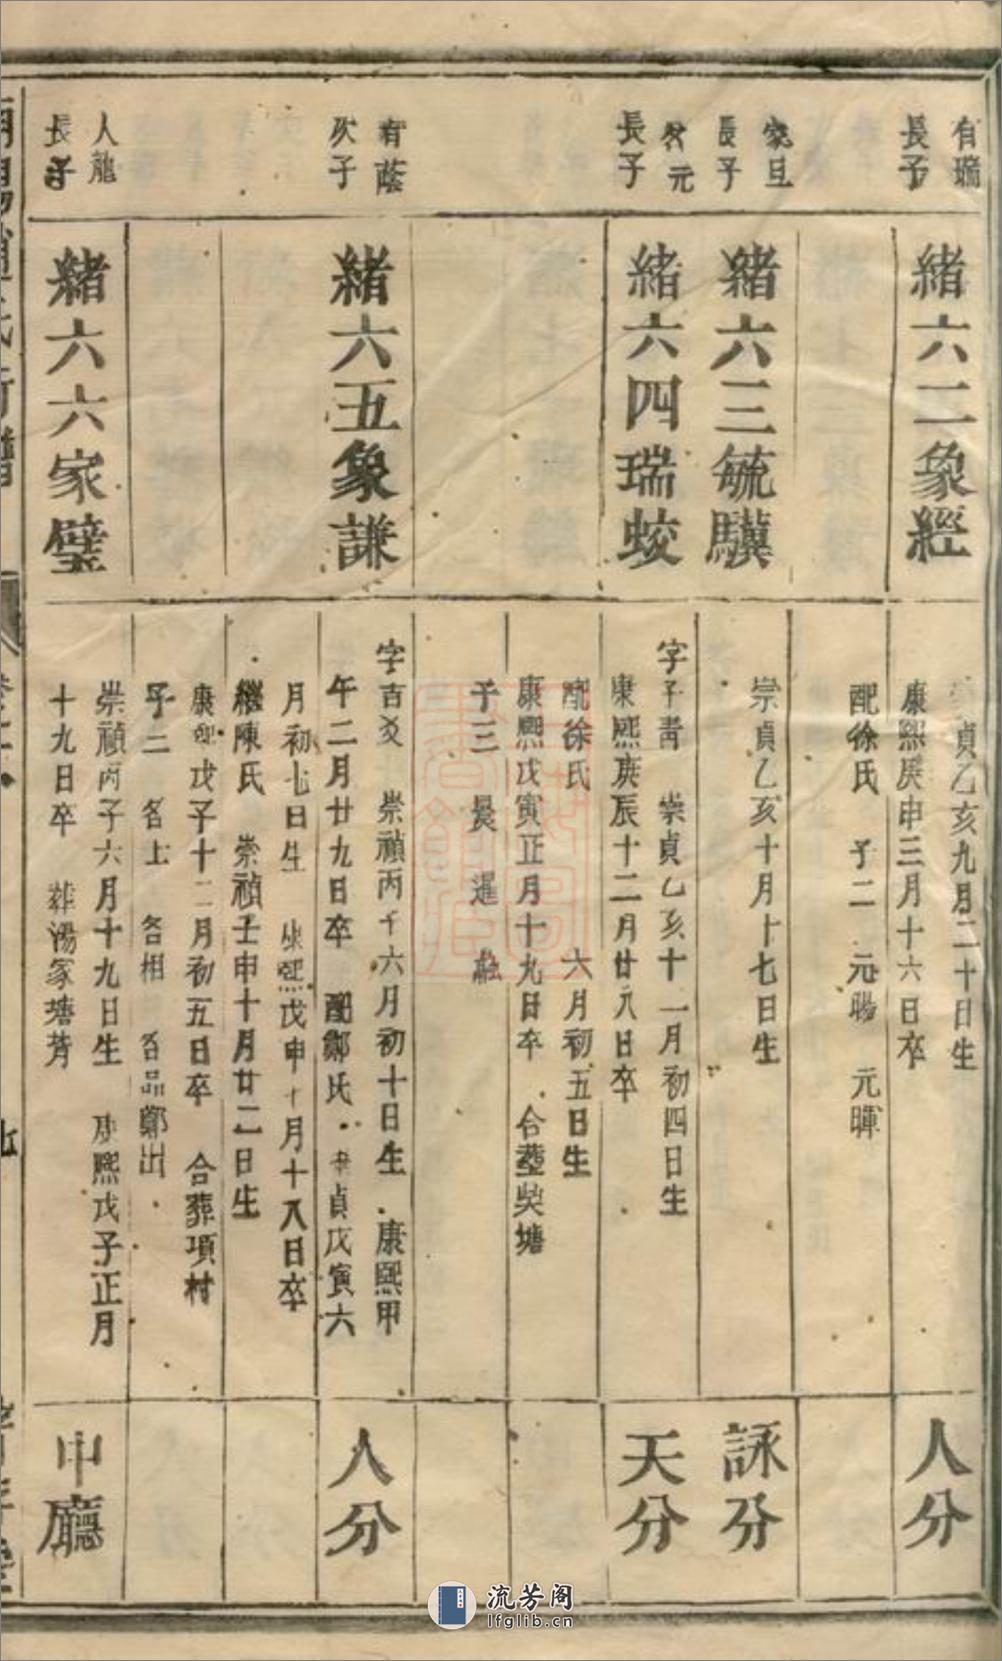 有瑞
長子
緒六二象經
貞乙亥九月二十日生
康熙庚申三月十六日卒
配徐氏 子二 元暘 元暉
人分
家旦
長子
緒六三毓驥
崇貞乙亥十月十七日生
詠分
元
長子
緒六四瑞蛟
字子青 崇貞乙亥十一月初四日生
康熙庚辰十二月廿八日卒
配徐氏 六月初五日生
康熙戊寅正月十九日卒 合塟吳塘
子三 晨 暹
天分
有蔭
次子
緒六五象謙
字吉爻 崇禎丙子六月初十日生 康熙甲
午二月廿九日卒 配鄭氏 貞戊寅六
月初七日生 康熙戊申十月十八日卒
繼陳氏 崇禎壬申十月廿二日生
康熙戊子十二月初五日卒 合葬項村
子二 名上 名相 名品鄭出
人分
人龍
長子
緒六六家璧
崇禎丙子六月十九日生 康熙戊子正月
十九日卒 葬湯家塘背
中廳
流芳阁
lfglib.cn